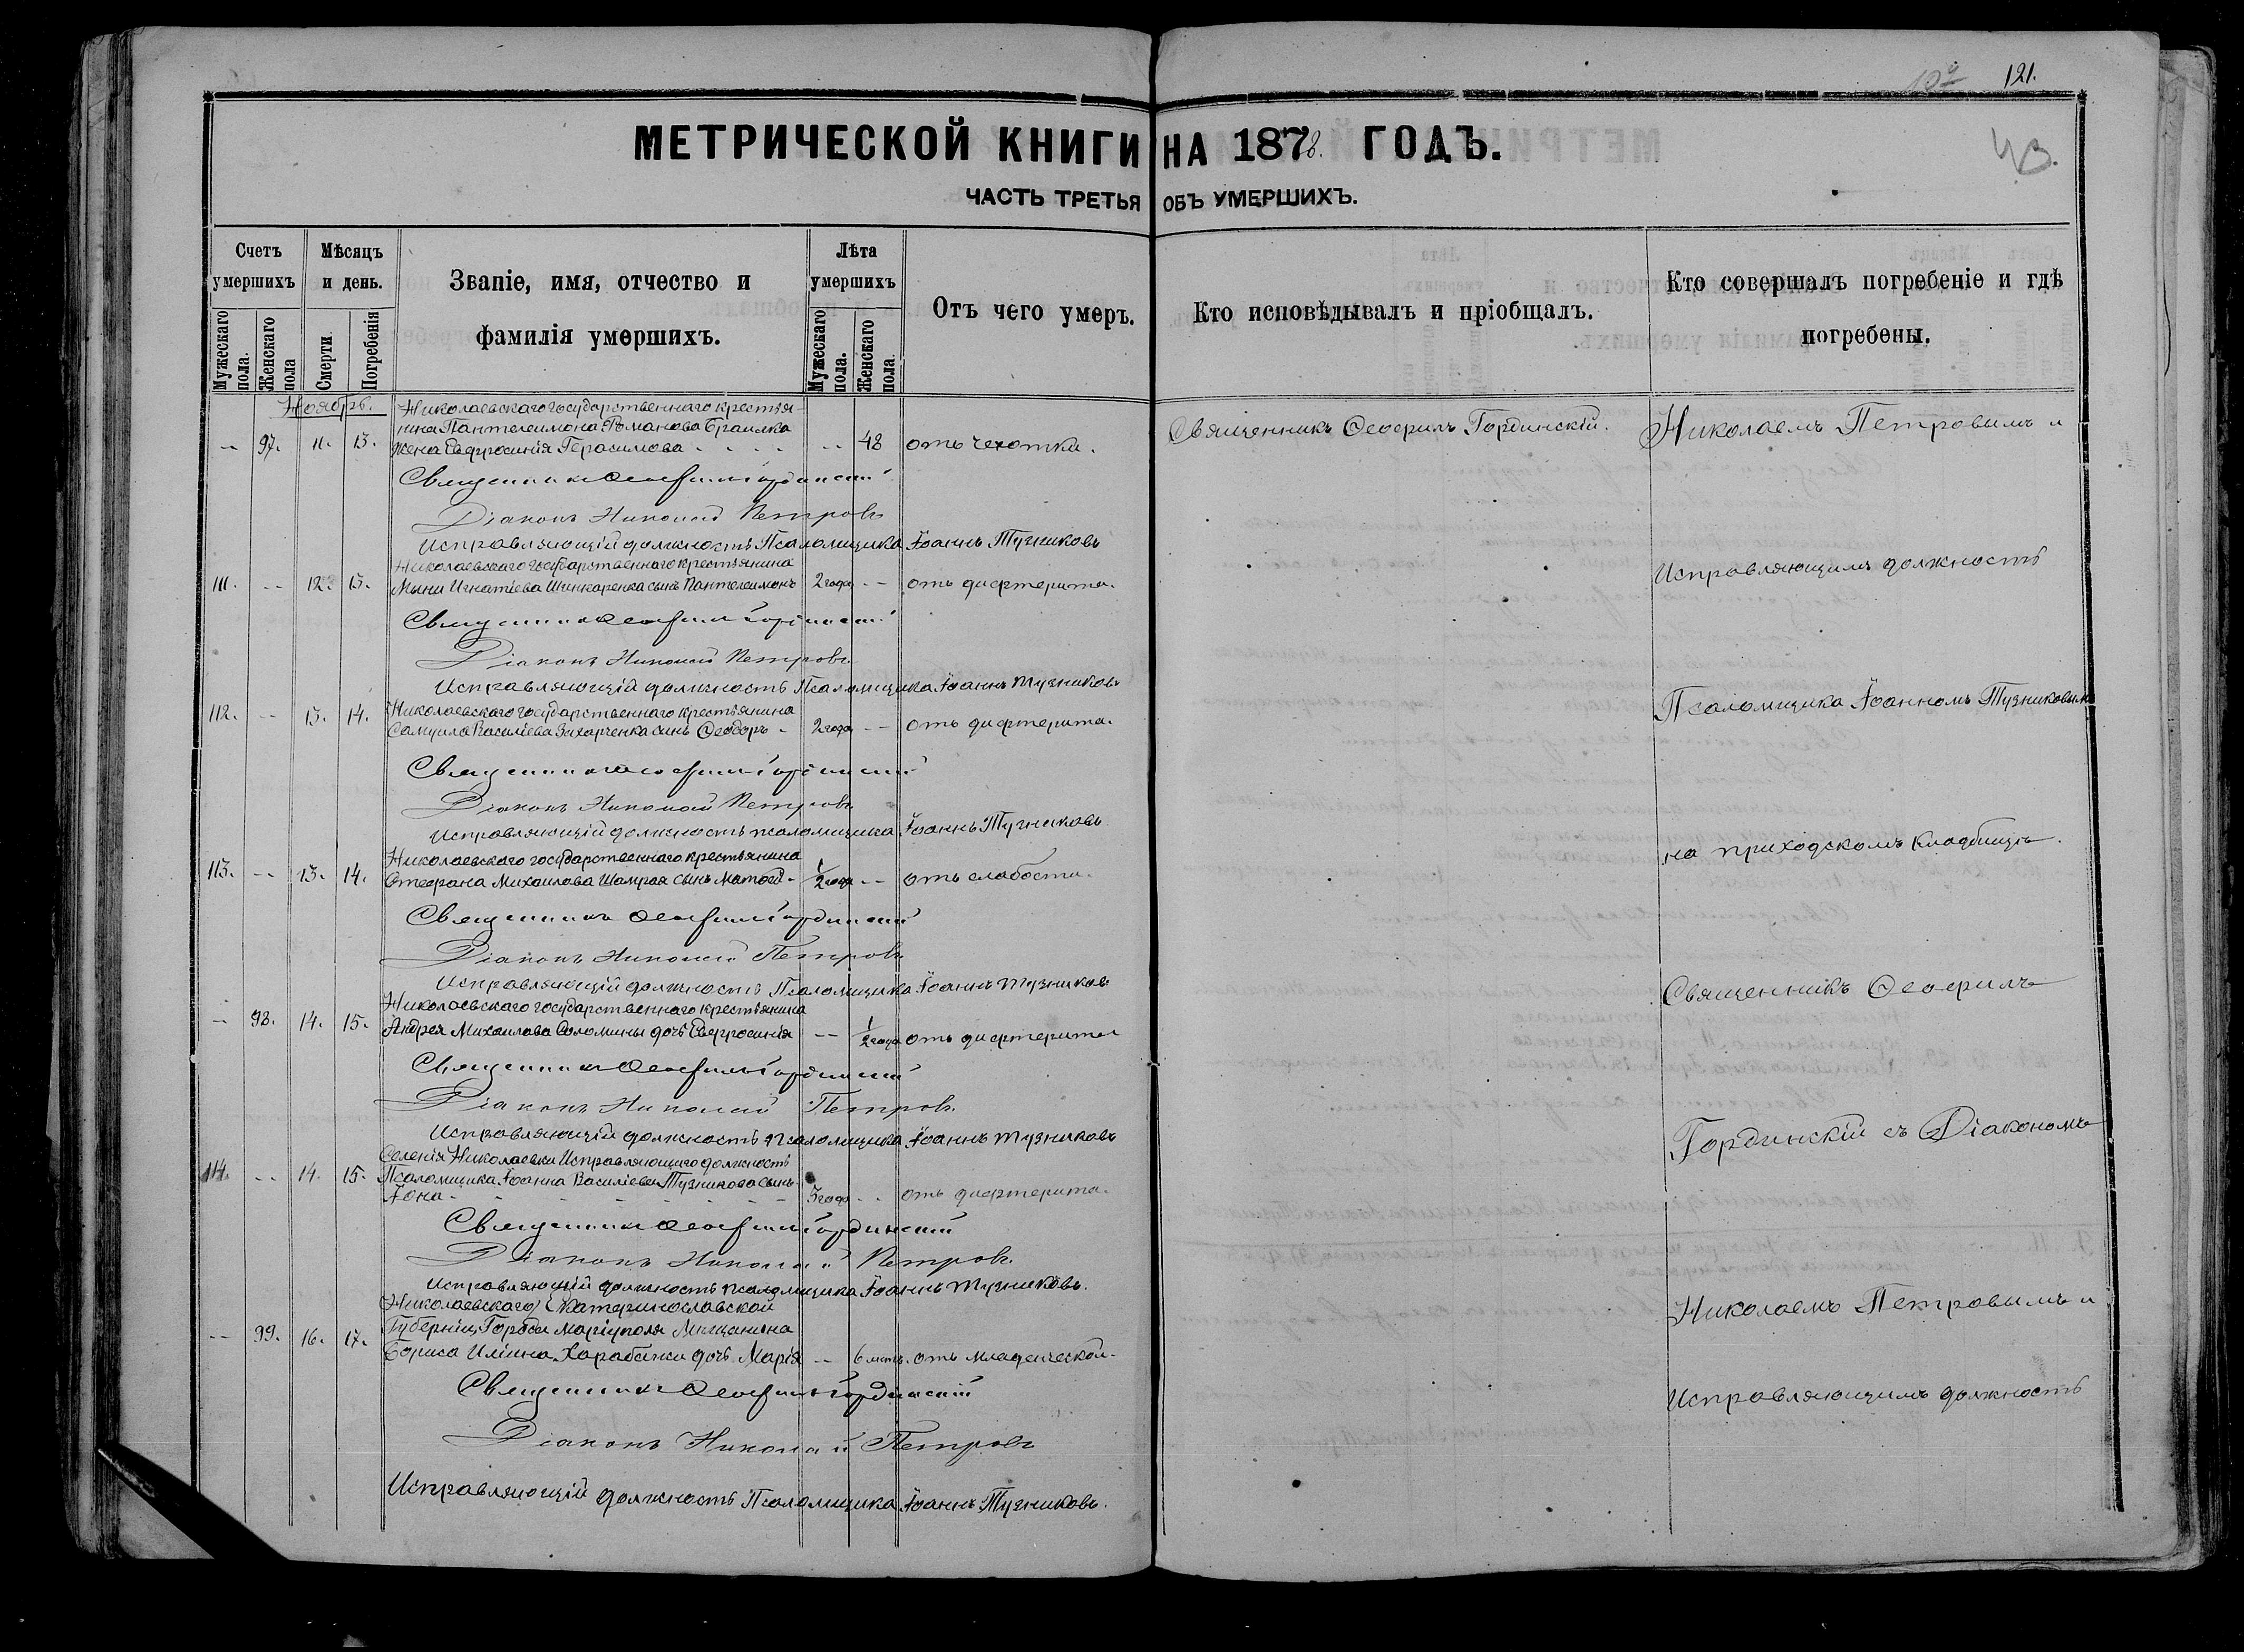 121.
43.
МЕТРИЧЕСКОЙ КНИГИ НА 1878. ГОДЪ.
ЧАСТЬ ТРЕТЬЯ ОБЪ УМЕРШИХЪ.
Счетъ умершихъ
Мужескаго пола.
Женскаго пола
Мѣсяцъ и день.
Смерти.
Погребенія
Званіе, имя, отчество и
фамилія умершихъ.
Лѣта умершихъ
Мужескаго пола.
Женскаго пола.
Отъ чего умеръ.
Кто исповѣдывалъ и пріобщалъ.
Кто совершалъ погребеніе и гдѣ
погребены.
Ноябрь.
Николаевскаго государственнаго крестья-
нина Пантелеимона Романова
-- 97. 11. 13. жена Евфросинія Герасимова -- 48 отъ чехотки.
Священникъ Ѳеофилъ Гординскій.
Священникъ Ѳеофилъ Гординскій
Діаконъ Николай Петровъ
Исправляющій должность Псаломщика Іоаннъ Тузниковъ
Николаевскаго государственнаго крестьянина
111. -- 12. 13. Мины Игнатіева Шинкаренка сынъ Пантелеимонъ 2 года -- отъ дифтерита.
Священникъ Ѳеофилъ Гординскій
Діаконъ Николай Петровъ
Исправляющій должность Псаломщика Іоаннъ Тузниковъ
112. -- 13. 14. Николаевскаго государственнаго крестьянина
Самуила Василіева Захарченка сынъ Ѳеодоръ - 2 года -- отъ дифтерита.
Священникъ Ѳеофилъ Гординскій
Діаконъ Николай Петровъ
Исправляющій должность псаломщика Іоаннъ Тузниковъ
Николаевскаго государственнаго крестьянина
113. -- 13. 14. Стефана Михаилова Шамрая сынъ Матѳей - 1/2 года -- отъ слабости.
Священникъ Ѳеофилъ Гординскій
Діаконъ Николай Петровъ
Исправляющій должность Псаломщика Іоаннъ Тузниковъ
Николаевскаго государственнаго крестьянина
-- 98. 14. 15. Андрея Михаилова Соломины дочь Евфросинія -- 1/2 года отъ дифтерита
Священникъ Ѳеофилъ Гординскій
Діаконъ Николай Петровъ.
Исправляющій должность псаломщика Іоаннъ Тузниковъ
Селенія Николаевки Исправляющаго должность
114. -- 14. 15. Псаломщика Іоанна Василіева Тузникова сынъ
Іона - - - - - - - 3 года -- отъ дифтерита.
Священникъ Ѳеофилъ Гординскій
Діаконъ Николай Петровъ.
Исправляющій должность псаломщика Іоаннъ Тузниковъ.
Николаевскаго Екатеринославской
Губерніи, Города Маріуполя Мѣщанина
-- 99. 16. 17. Бориса Иліина Харабажи дочь Марія -- 6 мѣсц. отъ младенческой.
Священникъ Ѳеофилъ Гординскій
Діаконъ Николай Петровъ
Исправляющій должность Псаломщика Іоаннъ Тузниковъ.
Николаемъ Петровымъ и
Исправляющимъ должность
Псаломщика Іоанномъ Тузниковымъ
на приходскомъ кладбищѣ.
Священникъ Ѳеофилъ
Гординскій съ Діакономъ
Николаемъ Петровымъ и
Исправляющимъ должность